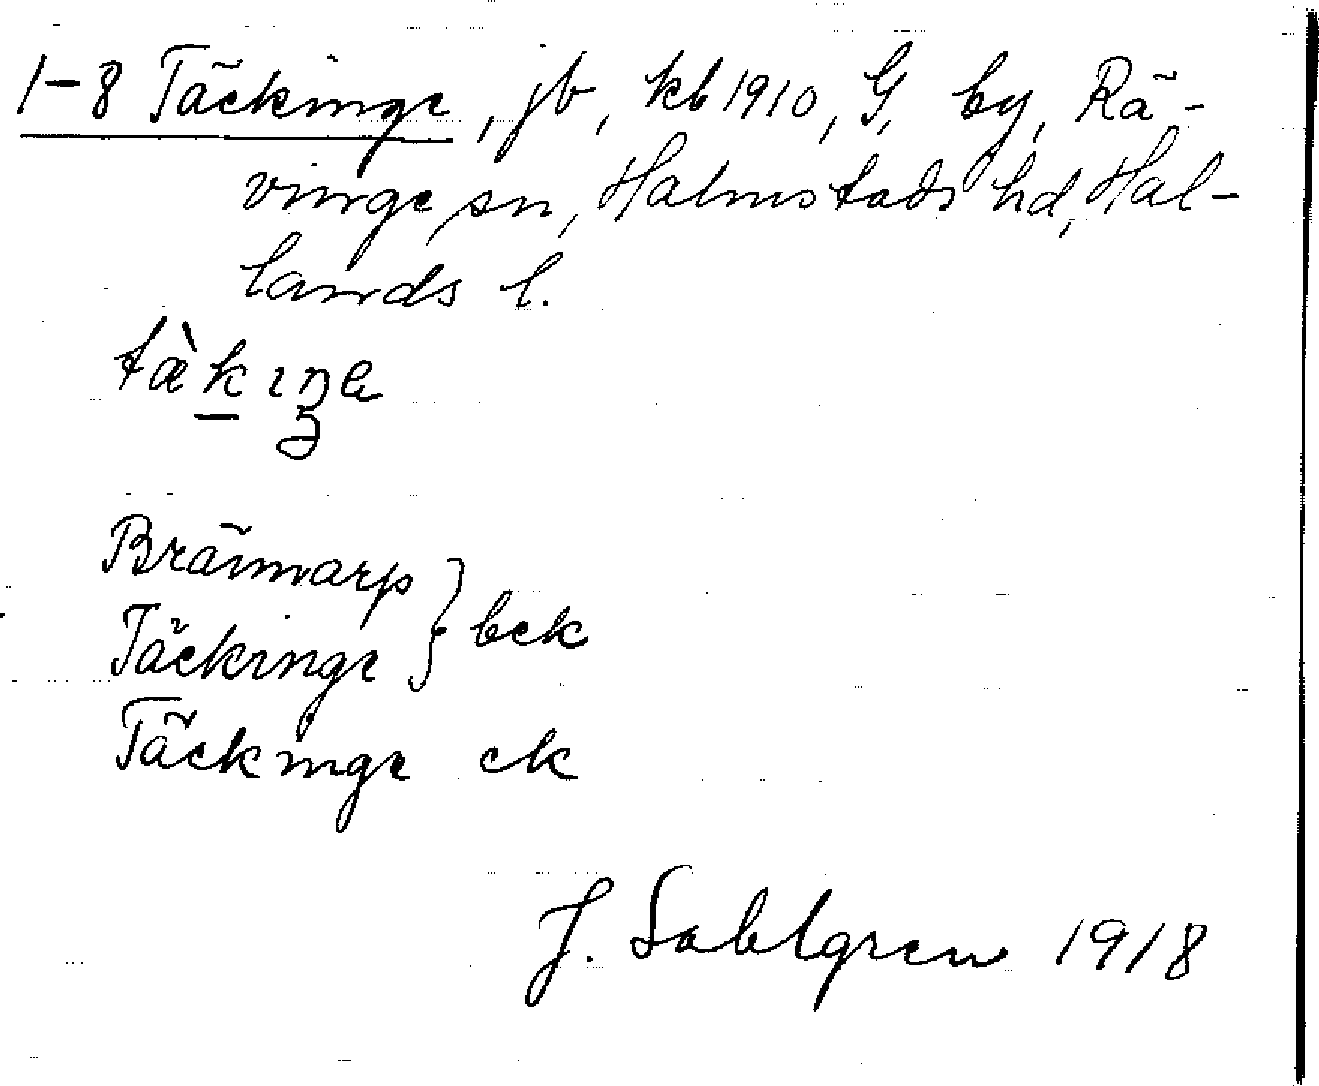 1–8 Täckinge, jb, kb 1910, G, by, Rä-
vinge sn, Halmstads hd, Hal-
lands l.
Brännarp
Täckinge } bck
Täckinge ck
J. Sahlgren 1918